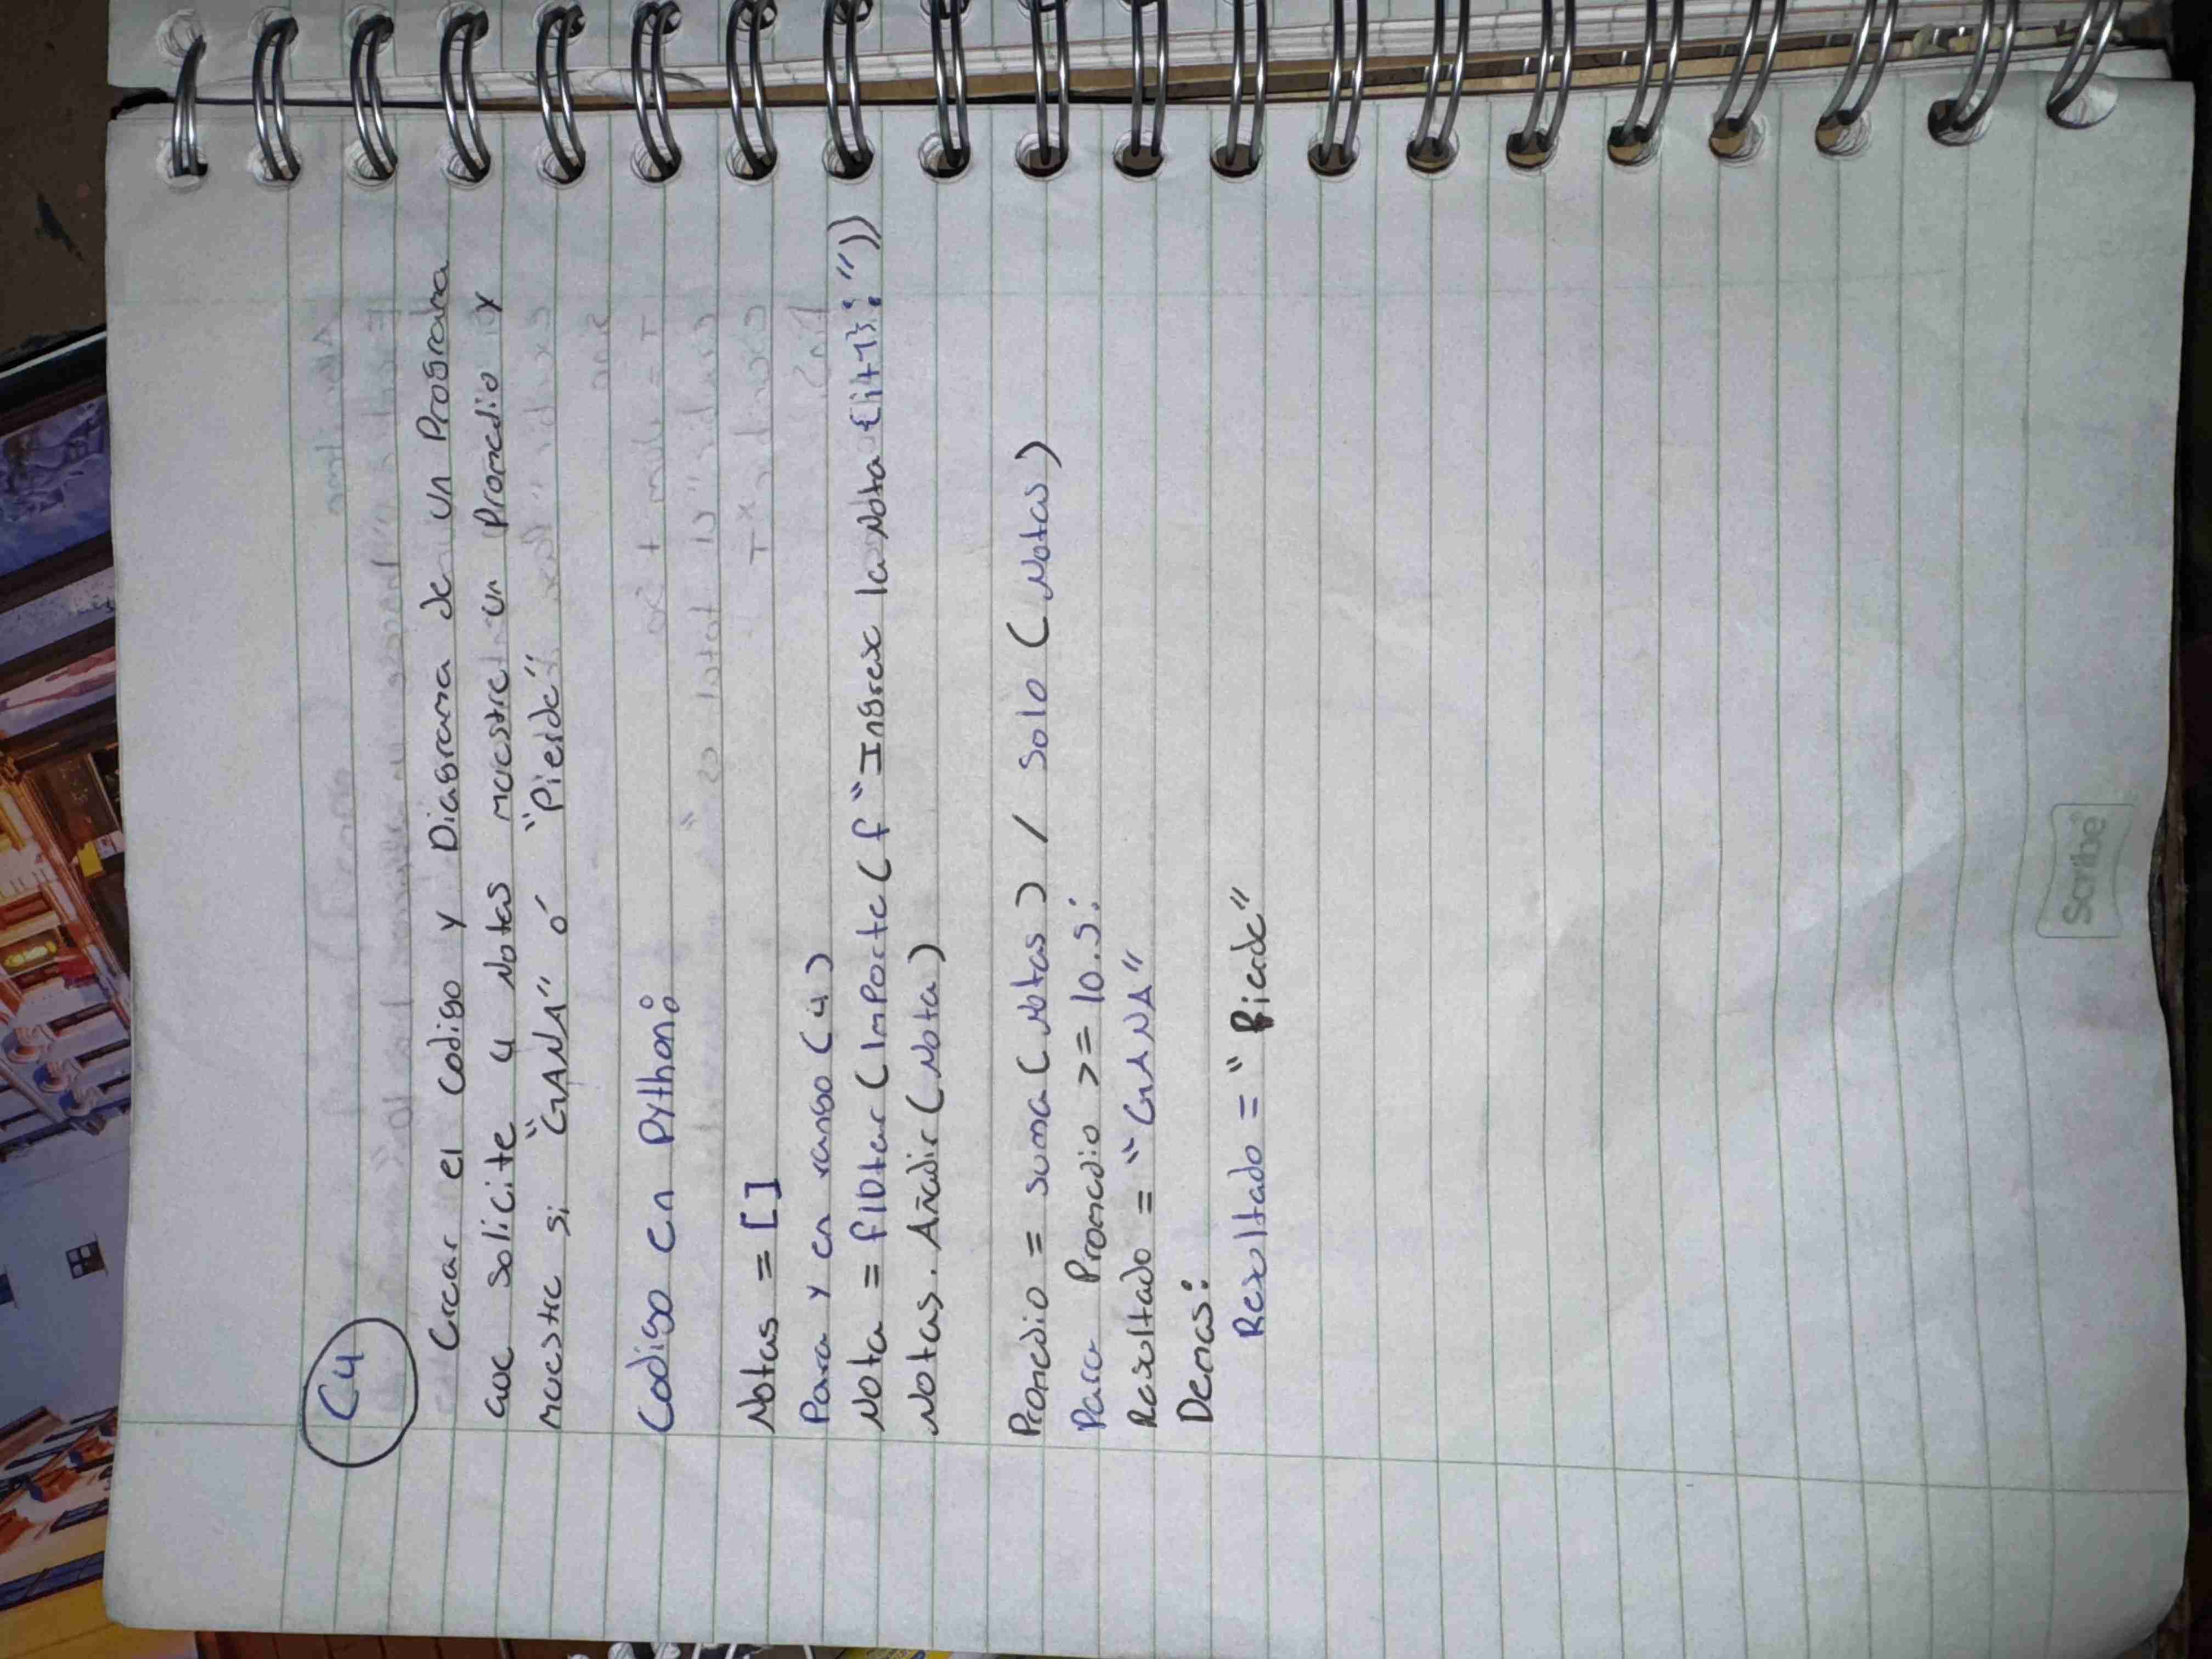 C4
Crear el codigo y Diagrama de un Programa
que solicite 4 Notas muestre un Promedio y
muestre si "GANA" ó "Pierde"
Codigo en Python:
Notas = []
Para y en rango (4)
Nota = flotar (importe (f "Ingrese la Nota {i+1}: "))
Notas. Añadir (Nota)
Promedio = suma (Notas) / Solo (Notas)
Para Promedio >= 10.5:
Resultado = "GANA"
Demas:
Resultado = "Pierde"
Scribe